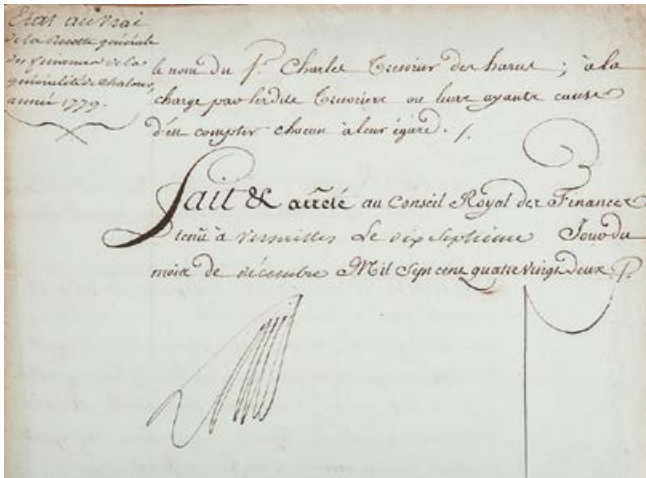 Etat au vrai
de la Recette générale
des finances de la
généralité de Chalons,
année 1779.
le nom du S.r Charlet Tresorier des haras ; à la
charge par lesdits Tresoriers ou leurs ayants cause
d'en compter chacun à leur égard ./.
Fait & arrêté au Conseil Royal des Finances
tenu à Versailles Le dix Septième Jour du
mois de décembre Mil Sept cent quatre vingt deux